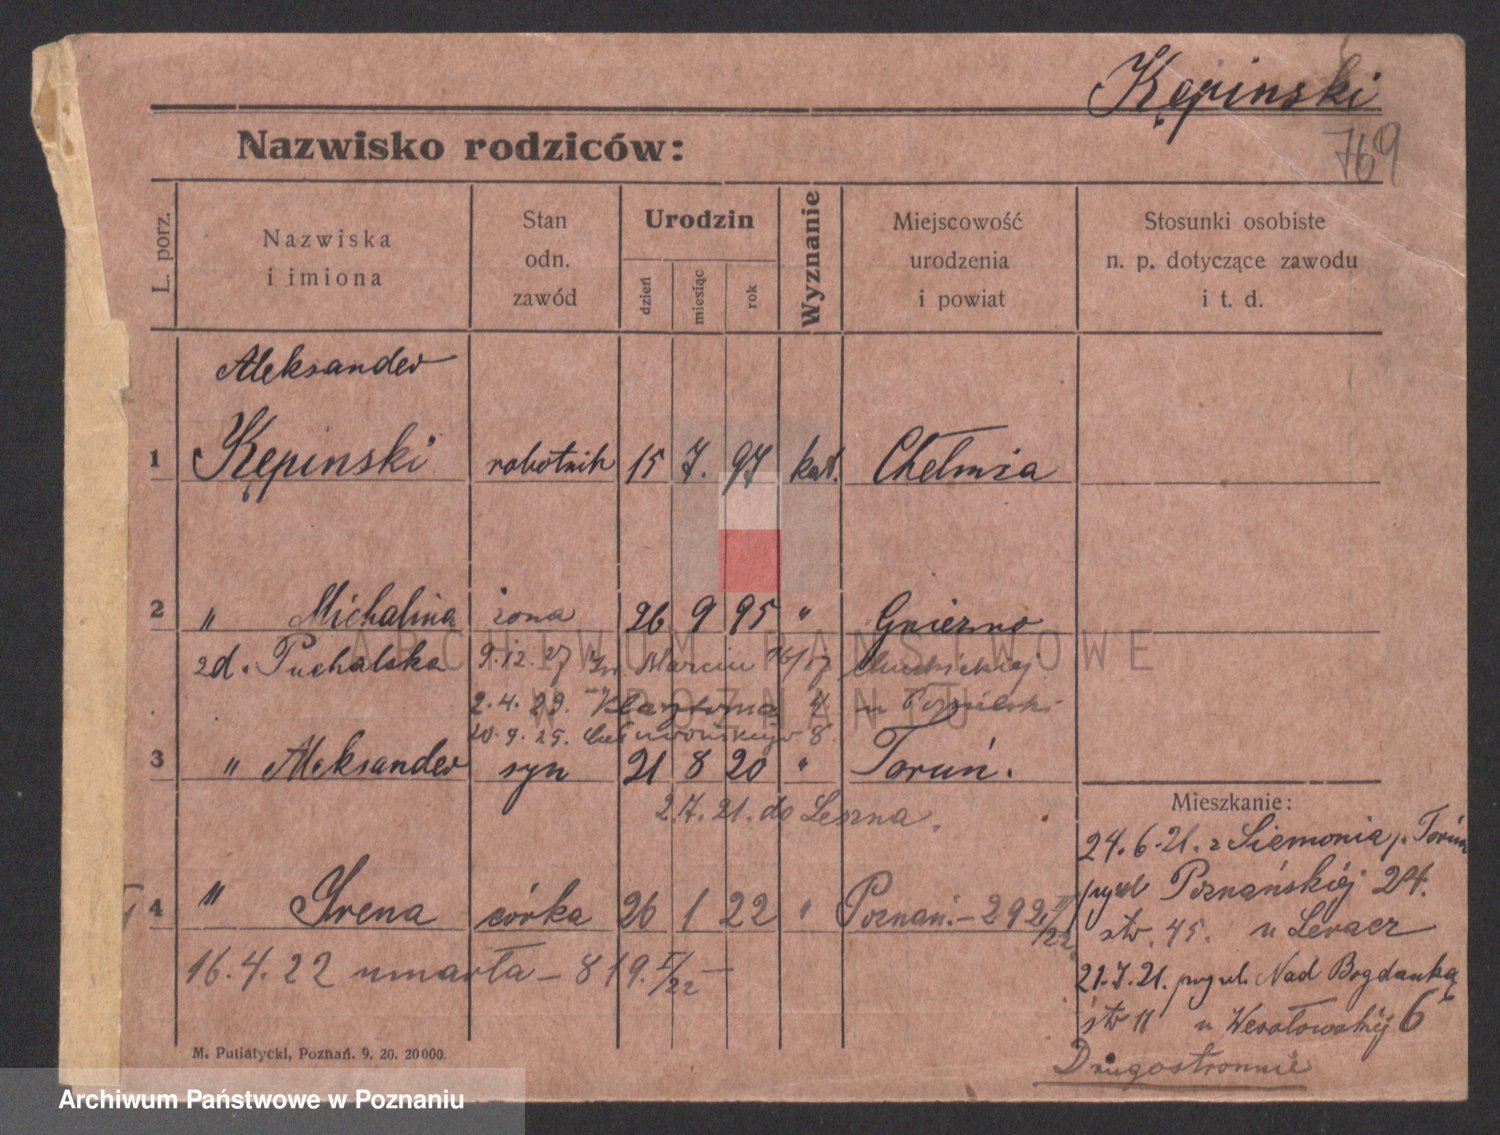 Kępinski
769
Nazwisko rodziców:
L. porz.
Nazwiska
i imiona
Stan
odn.
zawód
Urodzin
dzień
miesiąc
rok
Wyznanie
Miejscowość
urodzenia
i powiat
Stosunki osobiste
n. p. dotyczące zawodu
i t. d.
Aleksander
1 Kępinski robotnik 15 7. 97 kat. Chełmża
2 " Michalina żona 26 9 95 " Gniezno
zd. Puchalska 9.12.27 Marcin
2.4.29. Klasztorna 4
20.9.29. 8.
3 " Aleksander syn 21 8 20 " Toruń.
2.7.21. do Leszna.
Mieszkanie:
24.6.21. z Siemonia p. Toruń
przyb Poznańskiej 24.
str. 45. u Leracz
4 " Irena córka 26 1 22 " Poznań. – 292 II/22
16.4.22 umarła – 819. V/22 –
21.7.21. Nad Bogdanką
str 11 u 6
Drugostronnie
M. Putiatycki, Poznań. 9. 20. 20000.
ARCHIWUM PAŃSTWOWE
W POZNANIU
Archiwum Państwowe w Poznaniu